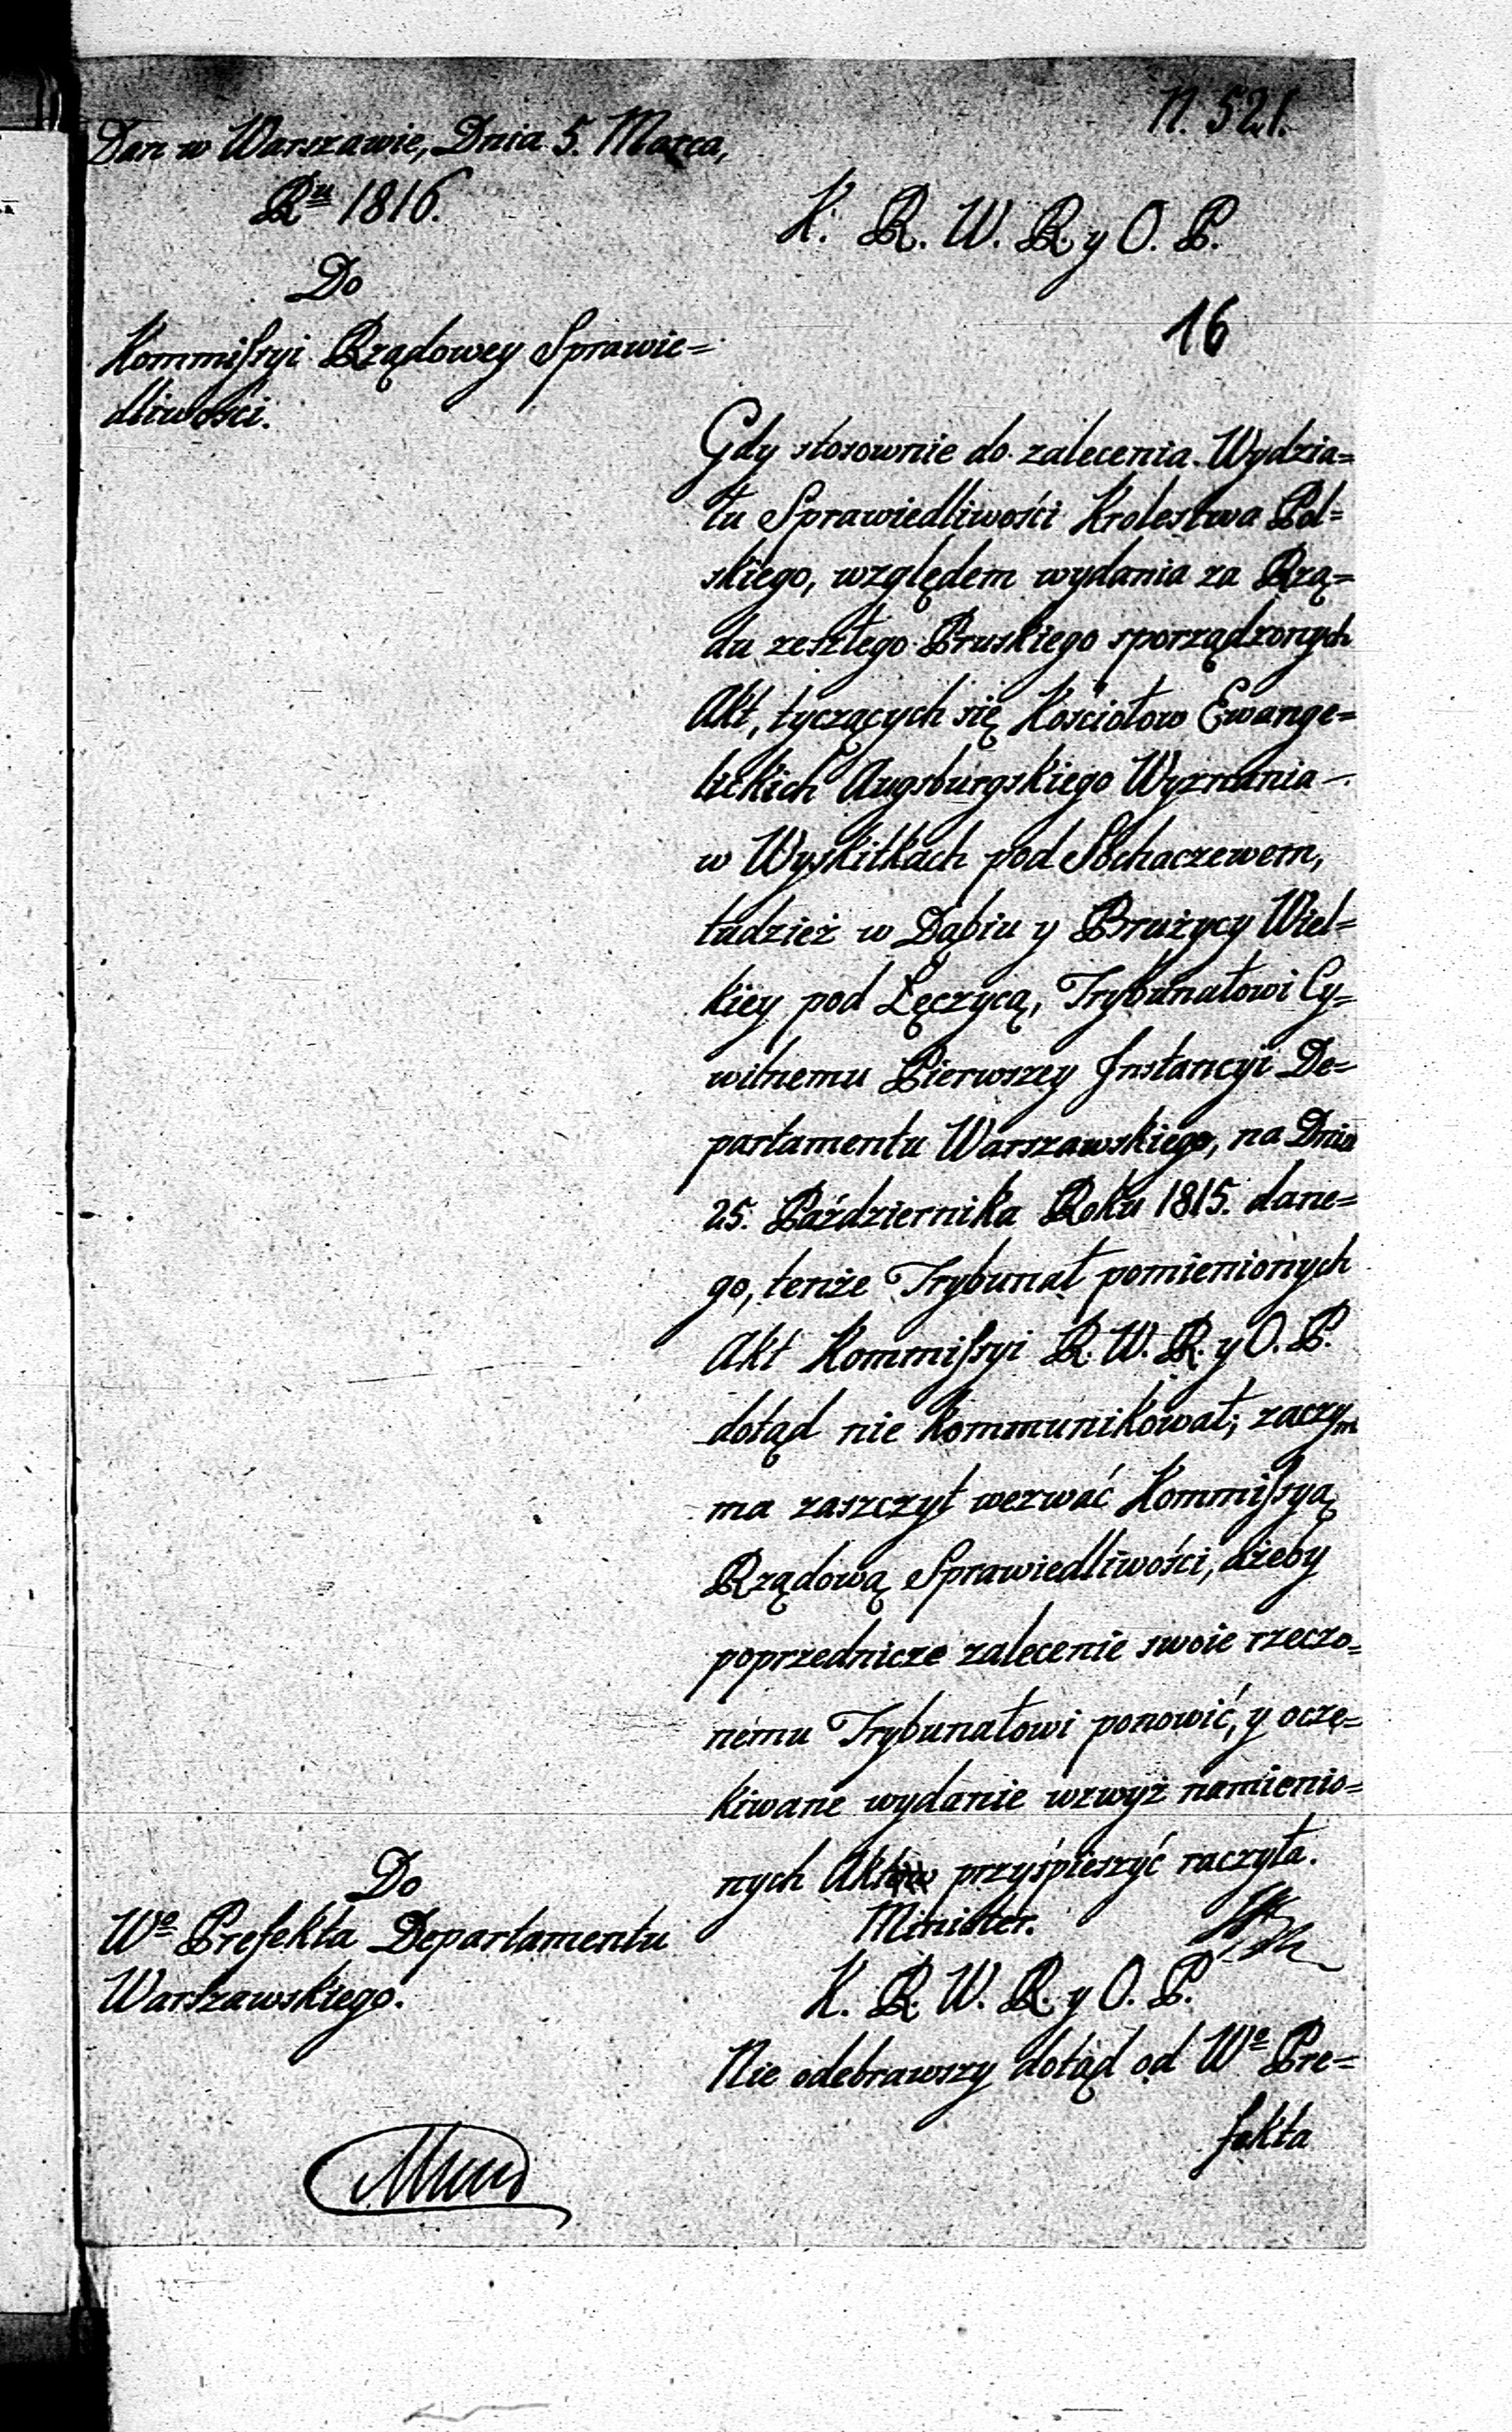 N. 521.
Dan w Warszawie, Dnia 5. Marca,
Rᵘ 1816.
K. R. W. R. y O. P.
16
Do
Kommissyi Rządowey Sprawie=
dliwości.
Gdy stosownie do zalecenia Wydzia=
łu Sprawiedliwości Krolestwa Pol=
skiego, względem wydania za Rzą=
du zeszłego Pruskiego sporządzonych
Akt, tyczących się Kościołow Ewange=
lickich Augsburgskiego Wyznania
w Wyskitkach pod Sochaczewem,
tudzież w Dąbiu y Brużycy Wiel=
kiey pod Łęczycą, Trybunałowi Cy=
wilnemu Pierwszey Instancyi De=
partamentu Warszawskiego, na Dniu
25. Października Roku 1815. dane=
go, tenże Trybunał pomienionych
Akt Kommissyi R. W. R. y O. P.
dotąd nie kommunikował; zaczym
ma zaszczyt wezwać Kommissyą
Rządową Sprawiedliwości, ażeby
poprzednicze zalecenie swoie rzeczo=
nemu Trybunałowi ponowić, y oczę=
kiwane wydanie wzwyż namienio=
nych Akt przyśpieszyć raczyła.
Minister.
Do
Wº Prefekta Departamentu
Warszawskiego.
K. R. W. R. y O. P.
Nie odebrawszy dotąd od Wº Pre=
fekta